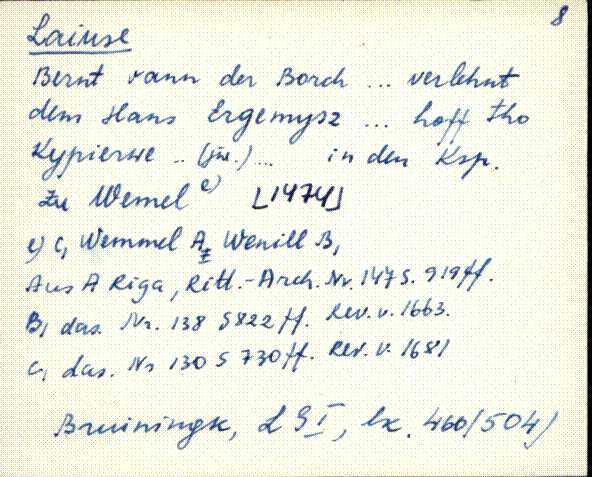 8
Laiuse
Bernt vann der Borch ... verlehnt
dem Hans Ergemysz ... hoff tho
Kypierwe .. (jür.) ... in den Ksp.
zu Wemel e) [1474]
e) C, Wemmel A, Wenill B,
Aus A Riga, Ritt.-Arch. Nr. 147 S. 919 ff.
B, das. Nr. 138 S 822 ff. Rev. v. 1663.
C, das. Nr 130 S 730 ff. Rev. v. 1681
Bruiningk, L G I, lk. 460/504/